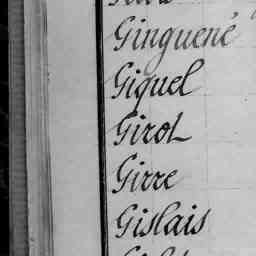 Ginguené
Giquel
Girot
Girre
Gislais